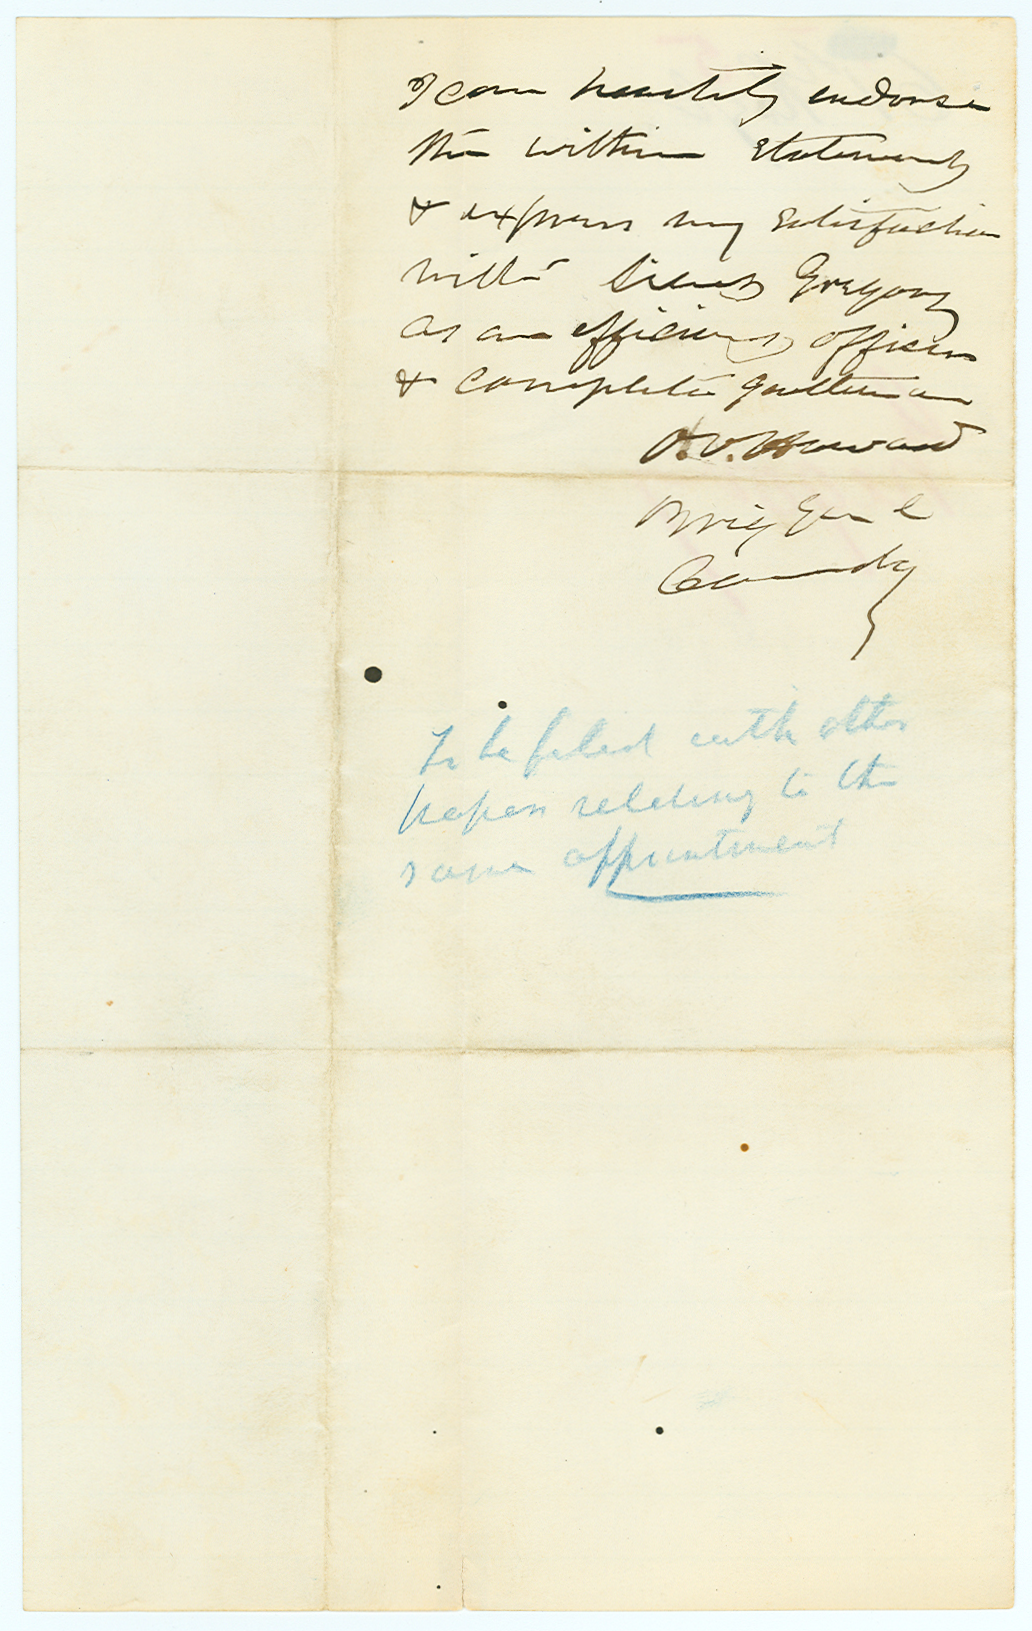 I can heartily endorse
the within statements
& express my satisfaction
with Lieut Gregory
as an efficient officer
& complete gentleman
Howard
Brig Genl
Comdg
To be filed with other
papers relating to the
same appointment